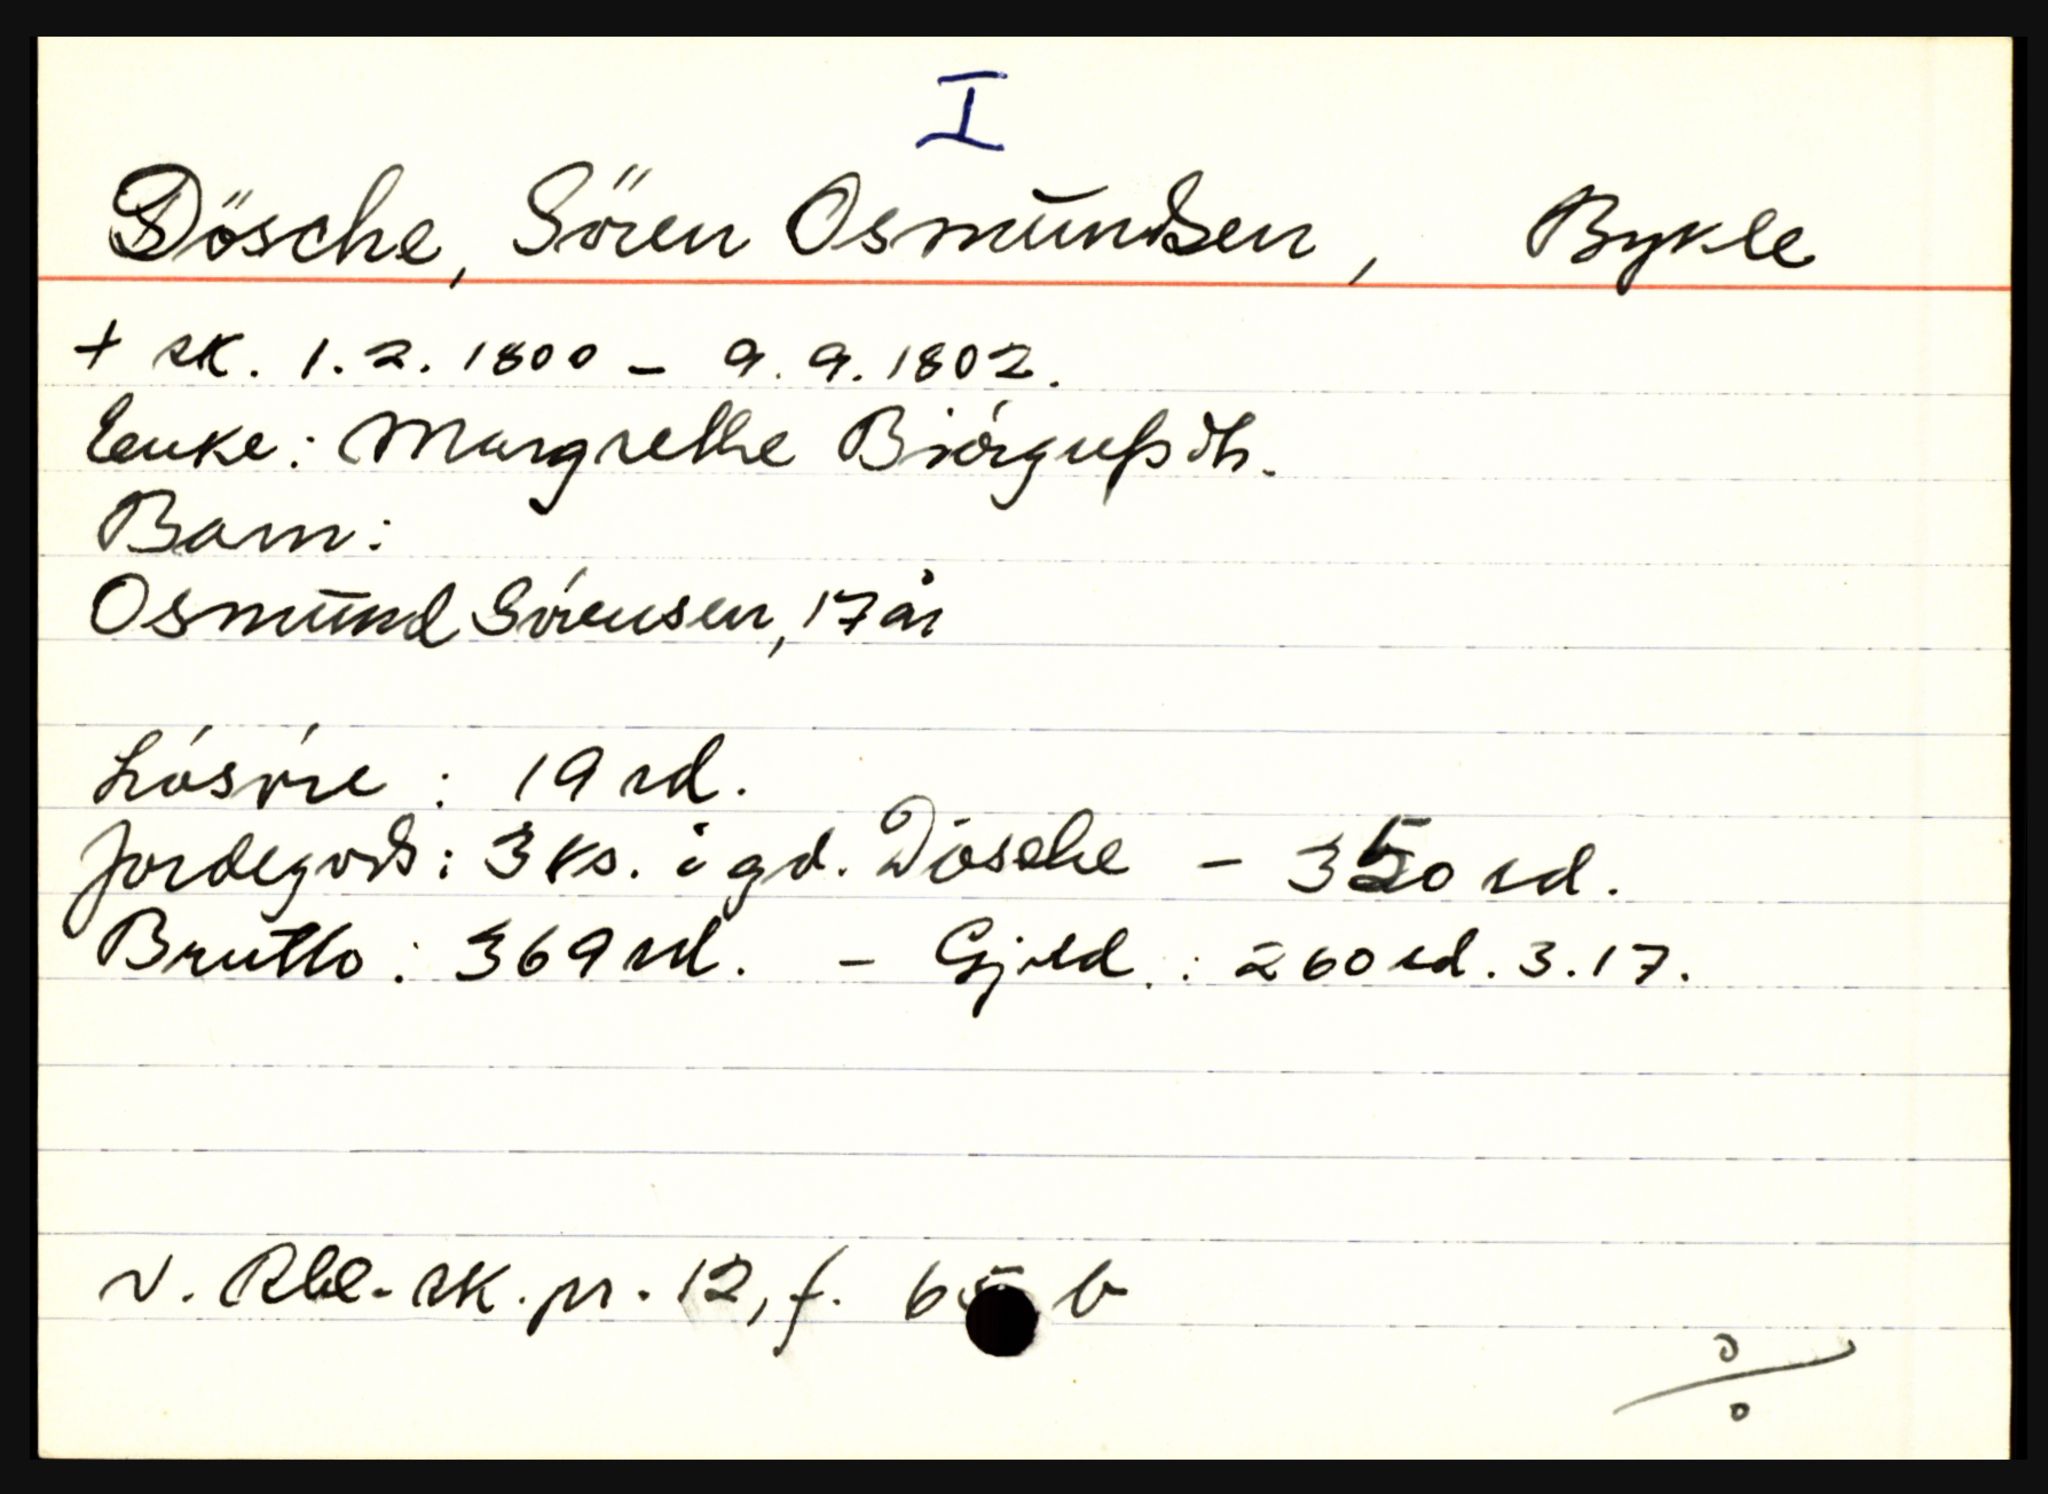 I
Dösche, Sören Osmundsen, Bykle
+ sk. 1.2. 1800 - 9.9.1802.
Enke: Margrethe Biórgufsdtr.
Barn:
Osmund Sórensen, 17 år
Lósóre : 19 rd.
Jordegods: 3 ks. i gd. Dósche - 350 rd.
Brutto : 369 rd. - Gjeld. : 260 rd. 3. 17.
v. Rbl. sk. pr. 12, f. 65 b